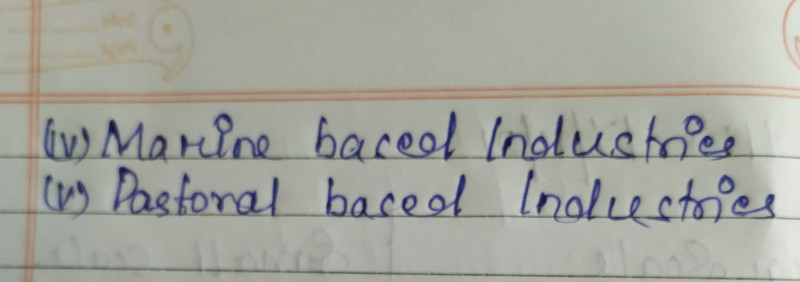 (iv) Marine baced Industries
(v) Pastoral baced Industries